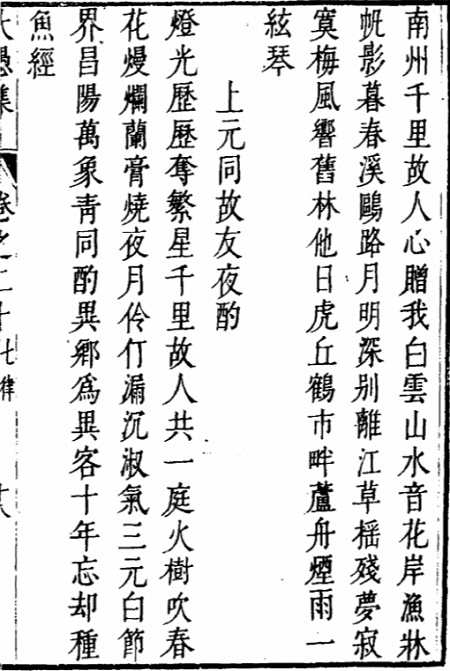 南州千里故人心贈我白雲山水音花岸漁牀
帆影暮春溪鷗路月明深别離江草搖殘夢寂
寞梅風響舊林他日虎丘鶴市畔蘆舟煙雨一
絃琴
上元同故友夜酌
燈光歷歷奪繁星千里故人共一庭火樹吹春
花熳爛蘭膏燒夜月伶仃漏沉淑氣三元白節
界昌陽萬象青同酌異鄉爲異客十年忘却種
魚經
大愚集 卷之二十七律 十八